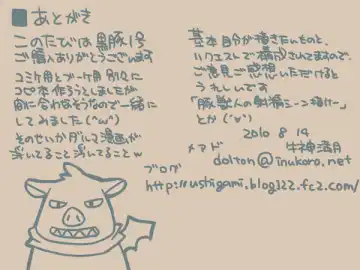 ■あとがき
このたびは黒豚1号
ご購入ありがとうございます
コミケ用とブーケ用別々に
コピ本作ろうとしましたが
間に合わなそうなので一緒に
してみました(^w^)
そのせいかダルマ漫画が
浮いてること浮いてることw
基本自分が描きたいものと、
リクエストで構成されてますので、
ご意見ご感想いただけると
うれしいです
「豚獣人の射精シーン描けー」
とか('v')
2010 8 14
牛神満月
メアド
dolton@inukoro.net
ブログ
http://ushigami.blog122.fc2.com/